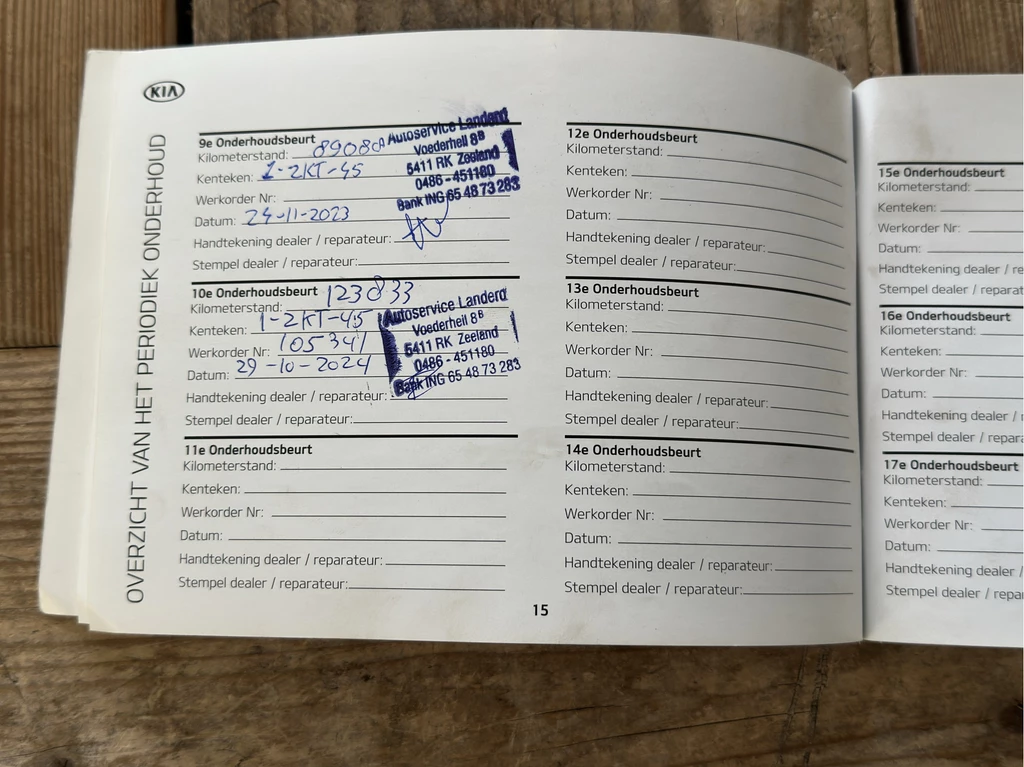 KIA
OVERZICHT VAN HET PERIODIEK ONDERHOUD
9e Onderhoudsbeurt
Kilometerstand: 89080
Kenteken: 1-2KT-45
Werkorder Nr:
Datum: 24-11-2023
Handtekening dealer / reparateur:
Stempel dealer / reparateur:
Autoservice Landerd
Voederhell 8B
5411 RK Zeeland
0486 - 451180
Bank ING 65 48 73 283
10e Onderhoudsbeurt
Kilometerstand: 123833
Kenteken: 1-2KT-45
Werkorder Nr: 105341
Datum: 29-10-2024
Handtekening dealer / reparateur:
Stempel dealer / reparateur:
Autoservice Landerd
Voederhell 8B
5411 RK Zeeland
0486 - 451180
Bank ING 65 48 73 283
11e Onderhoudsbeurt
Kilometerstand:
Kenteken:
Werkorder Nr:
Datum:
Handtekening dealer / reparateur:
Stempel dealer / reparateur:
12e Onderhoudsbeurt
Kilometerstand:
Kenteken:
Werkorder Nr:
Datum:
Handtekening dealer / reparateur:
Stempel dealer / reparateur:
13e Onderhoudsbeurt
Kilometerstand:
Kenteken:
Werkorder Nr:
Datum:
Handtekening dealer / reparateur:
Stempel dealer / reparateur:
14e Onderhoudsbeurt
Kilometerstand:
Kenteken:
Werkorder Nr:
Datum:
Handtekening dealer / reparateur:
Stempel dealer / reparateur:
15
15e Onderhoudsbeurt
Kilometerstand:
Kenteken:
Werkorder Nr:
Datum:
Handtekening dealer / re
Stempel dealer / reparat
16e Onderhoudsbeurt
Kilometerstand:
Kenteken:
Werkorder Nr:
Datum:
Handtekening dealer / r
Stempel dealer / repara
17e Onderhoudsbeurt
Kilometerstand:
Kenteken:
Werkorder Nr:
Datum:
Handtekening dealer /
Stempel dealer / repa